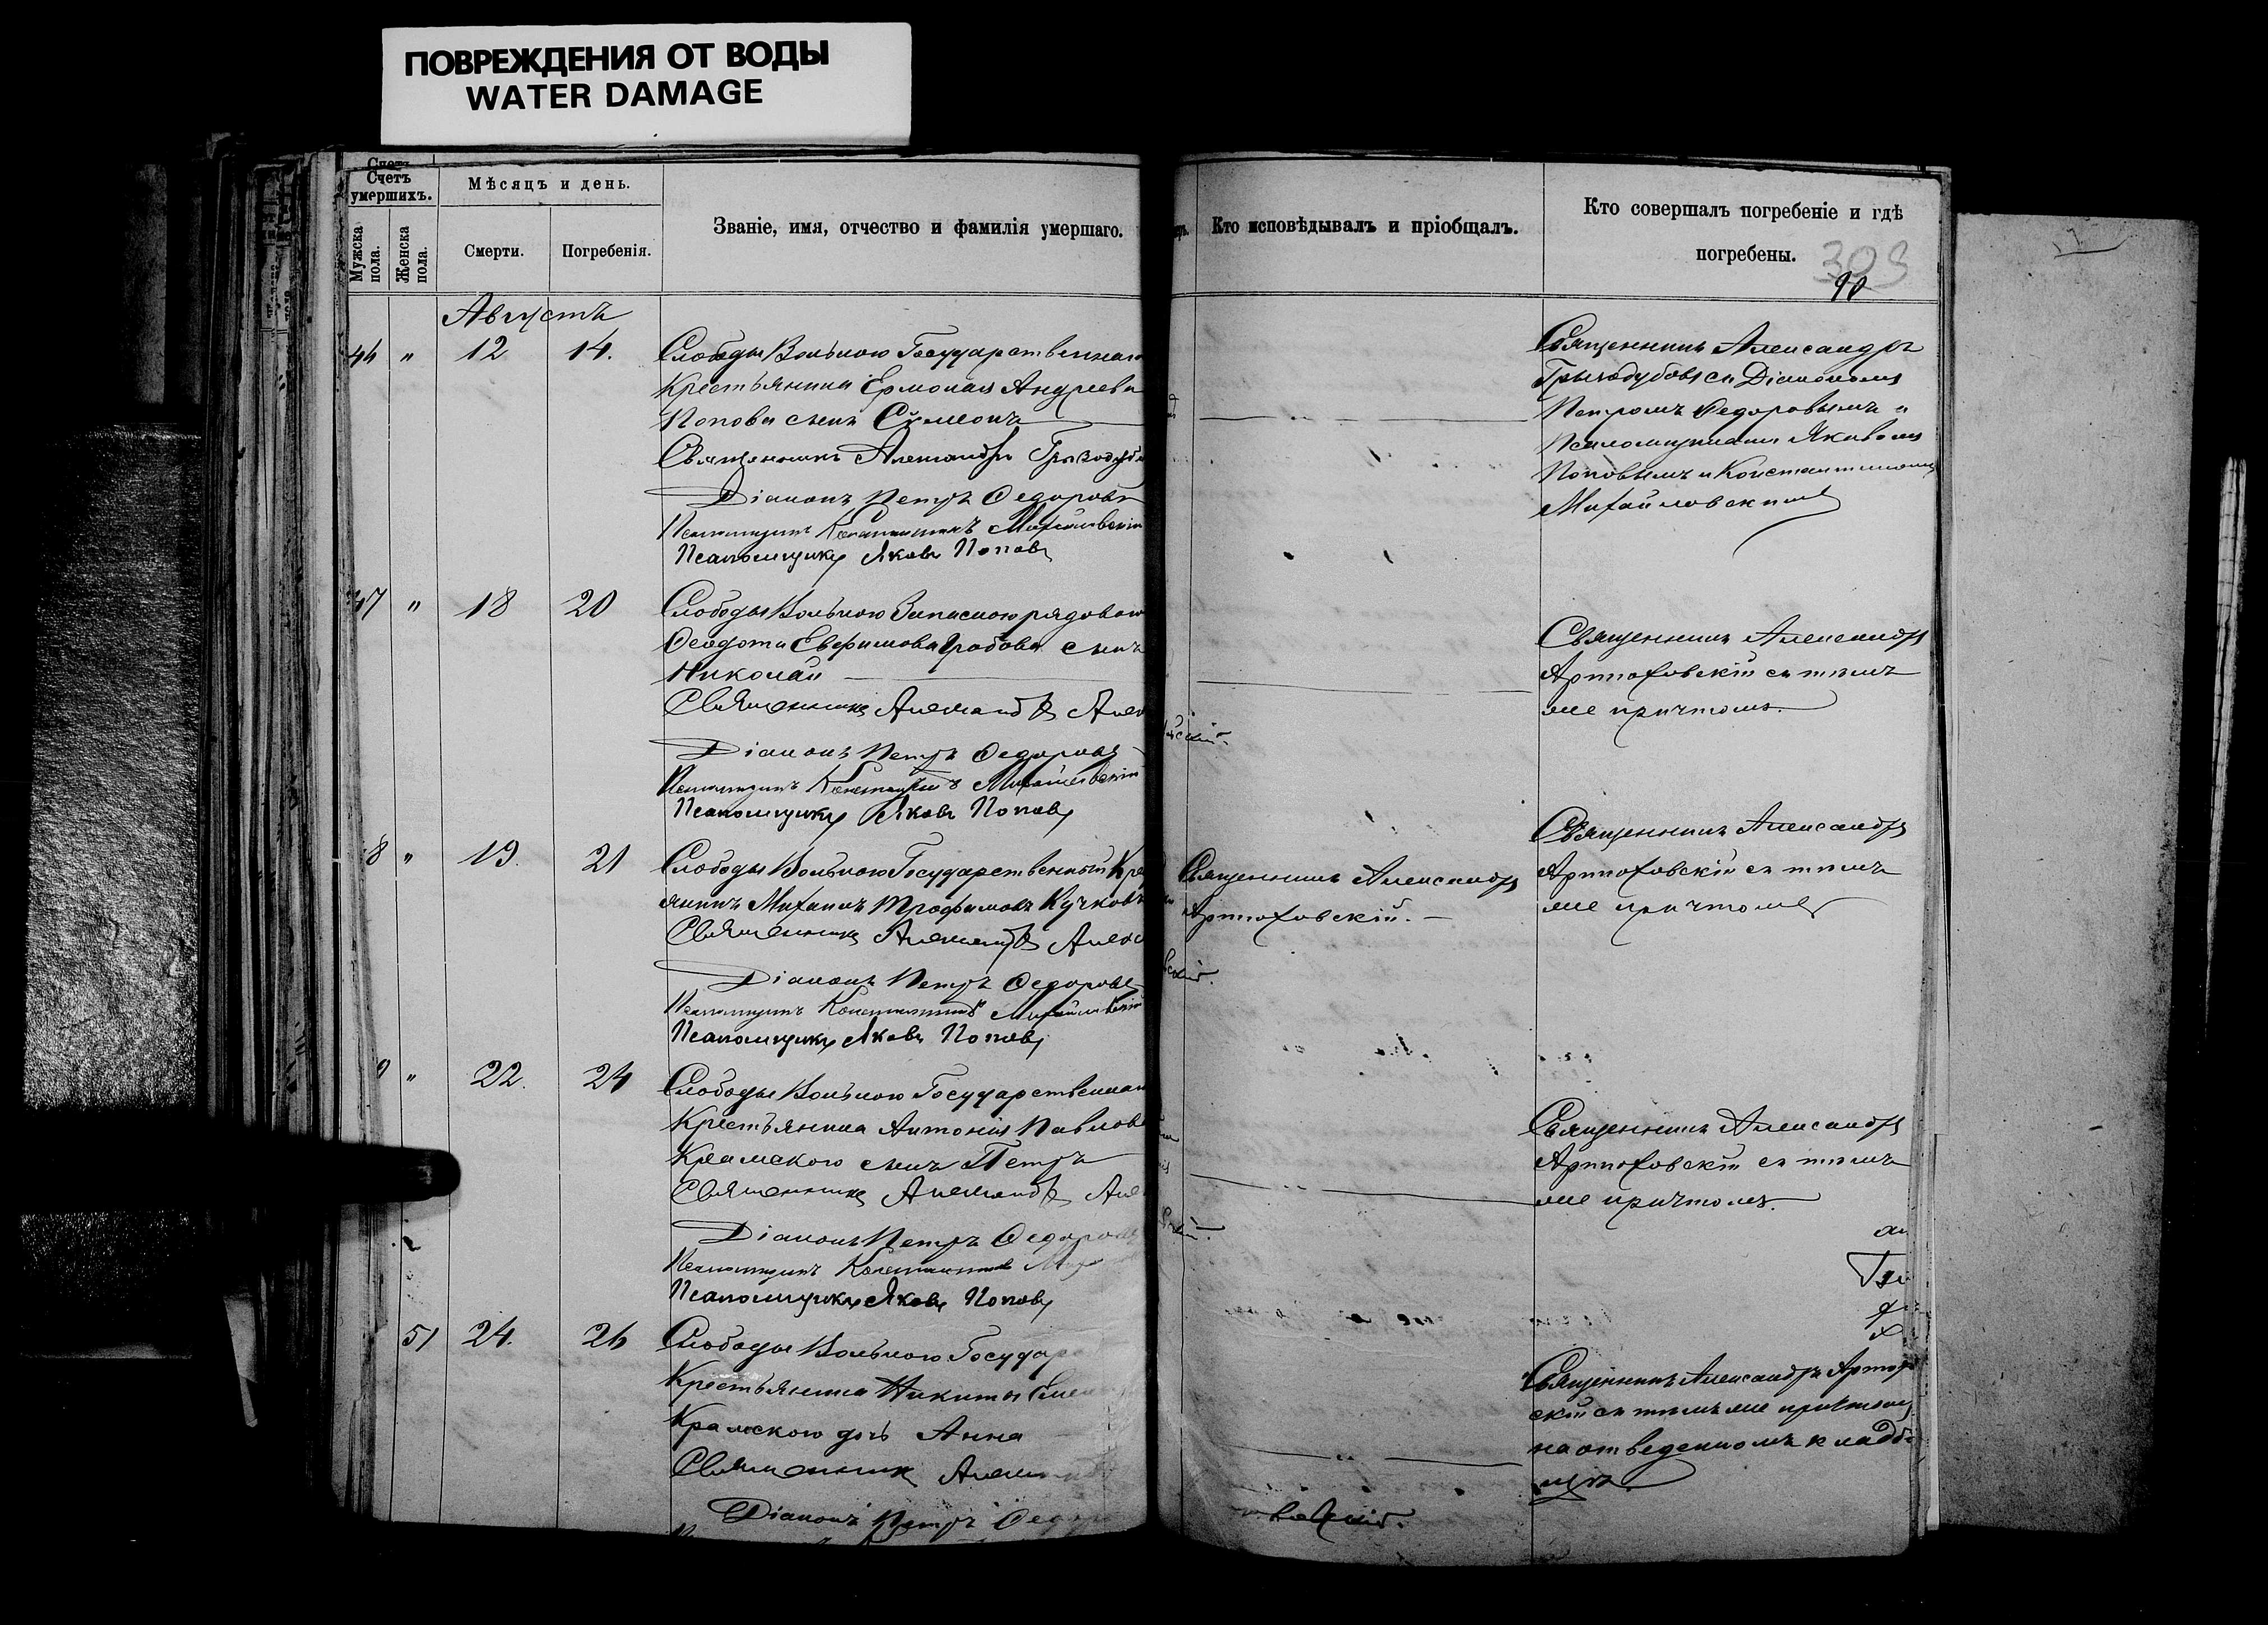 ПОВРЕЖДЕНИЯ ОТ ВОДЫ
WATER DAMAGE
Счетъ
Счетъ умершихъ.
Мужска пола.
Женска пола.
Мѣсяцъ и день.
Смерти.
Погребенія.
Званіе, имя, отчество и фамилія умершаго.
Кто исповѣдывалъ и пріобщалъ.
Кто совершалъ погребеніе и гдѣ
погребены.
303
90
Августъ
" 12 14. Слободы Вольною Государственнаго
Крестьянина Ермолая Андреева
Попова сынъ Симеонъ
Священникъ Александръ
Діаконъ Петръ Федоровъ
Псаломщикъ Константинъ Михайловскій
Псаломщикъ Яковъ Поповъ
Священникъ Александръ
съ Діакономъ
Петромъ Федоровымъ и
Псаломщиками Яковомъ
Поповымъ и Константиномъ
Михайловскимъ
47 " 18 20 Слободы Вольною Запасного рядового
Феодота Евфимова сынъ
Николай
Священникъ Александръ
Діаконъ Петръ Федоровъ
Псаломщикъ Константинъ Михайловскій
Псаломщикъ Яковъ Поповъ
Священникъ Александръ
Артюховскій съ тѣмъ
же причтомъ.
8 " 19. 21 Слободы Вольною Государственный Кре
янинъ Михаилъ Трофимовъ Кучковъ
Священникъ Александръ
Діаконъ Петръ Федоровъ
Псаломщикъ Константинъ Михайловскій
Псаломщикъ Яковъ Поповъ
Священникъ Александръ
Артюховскій.
Священникъ Александръ
Артюховскій съ тѣмъ
же причтомъ
9 " 22. 24 Слободы Вольною Государственнаго
Крестьянина Антонія Павлова
Крамского сынъ Петръ
Священникъ Александръ
Діаконъ Петръ Федоровъ
Псаломщикъ Константинъ
Псаломщикъ Яковъ Поповъ
Священникъ Александръ
Артюховскій съ тѣмъ
же причтомъ.
51 24. 26 Слободы Вольною Государ
Крестьянина Никиты
Крамского дочь Анна
Священникъ
Діаконъ Петръ Федор
Священникъ Александръ Артюхо
скій съ тѣмъ же причтомъ
на отведенномъ кладби
щѣ.